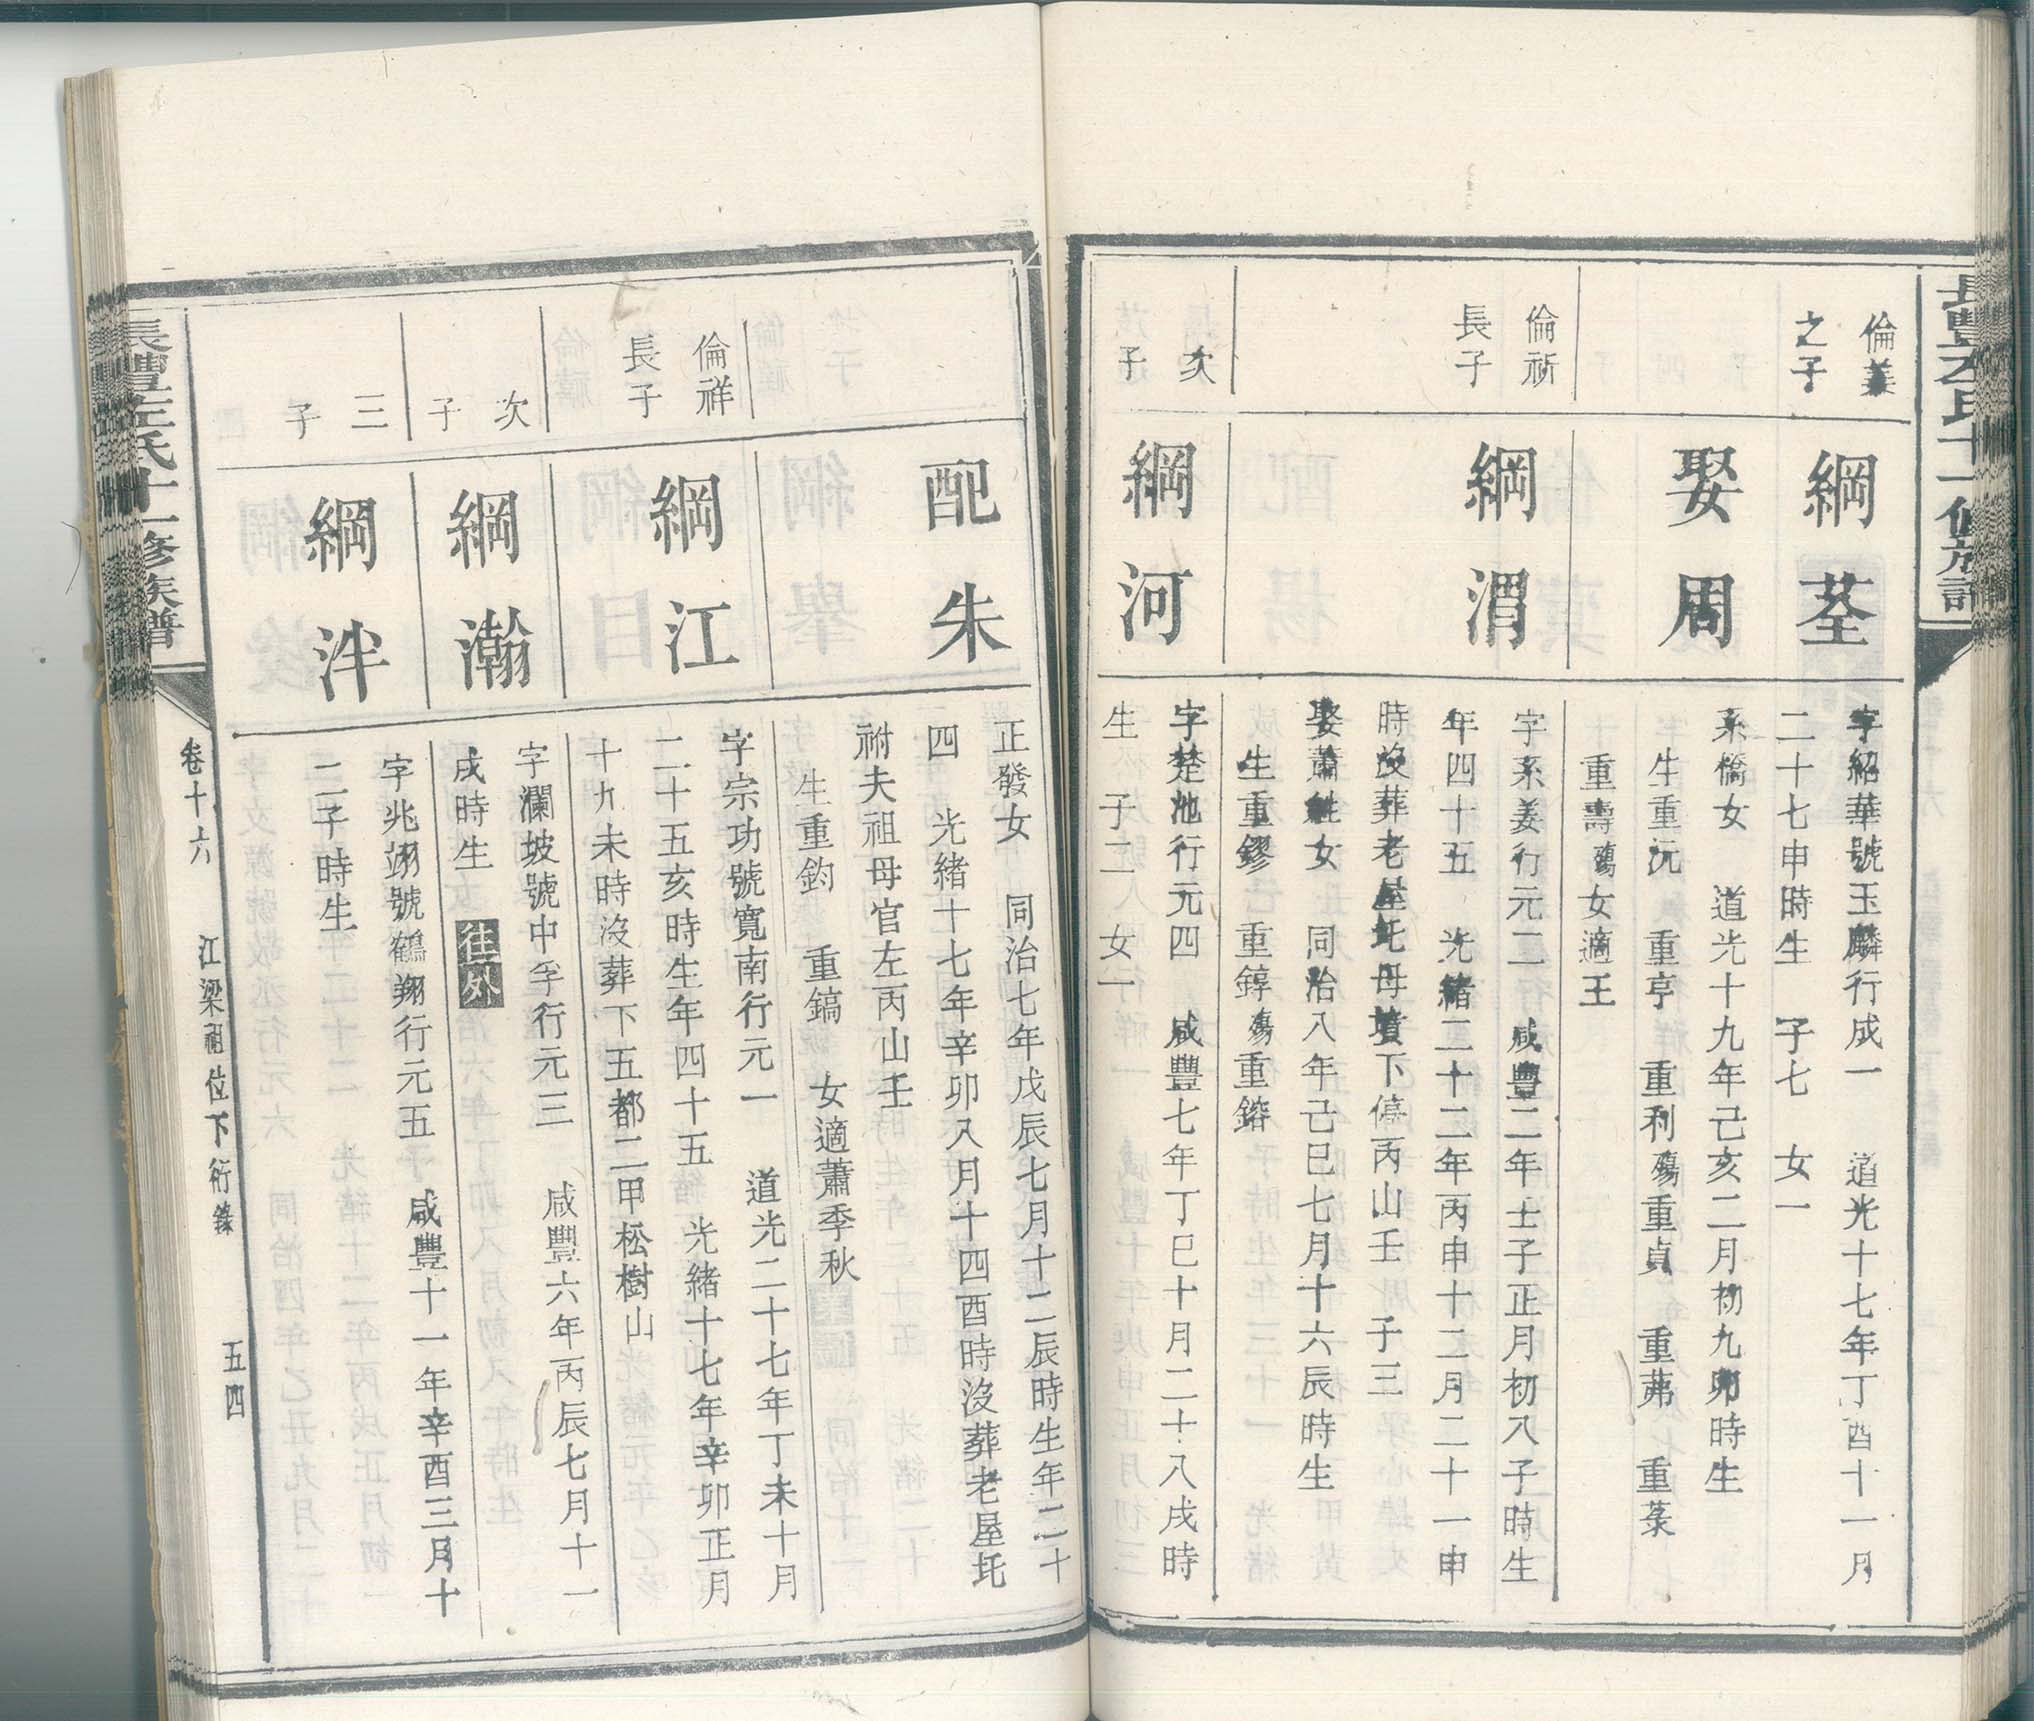 倫義
之子
綱荃
字紹華號玉麟行成一　道光十七年丁酉十一月
二十七申時生　子七　女一
娶周
系橋女　道光十九年己亥二月初九卯時生
生重沅　重亨　重利殤重貞　重茀　重棻
重壽殤女適王
倫祈
長子
綱渭
字系姜行元二　咸豐二年壬子正月初八子時生
年四十五　光緒二十二年丙申十二月二十一申
時沒葬老屋圫母墳下傍丙山壬　子三
娶蕭姓女　同治八年己巳七月十六辰時生
生重鏐　重錞殤重鎔
次
子
綱河
字楚池行元四　咸豐七年丁巳十月二十八戌時
生　子二　女一
配朱
正發女　同治七年戊辰七月十二辰時生年二十
四　光緒十七年辛卯八月十四酉時沒葬老屋圫
祔夫祖母官左丙山壬
生重鈞　重鎬　女適蕭季秋
倫祥
長子
綱江
字宗功號寬南行元一　道光二十七年丁未十月
二十五亥時生年四十五　光緒十七年辛卯正月
十九未時沒葬下五都二甲松樹山
次
子
綱瀚
字瀾坡號中孚行元三　咸豐六年丙辰七月十一
戌時生　往外
三
子
綱泮
字兆翊號鶴翔行元五　咸豐十一年辛酉三月十
二子時生
長豐左氏十一修族譜
卷十六　江梁祖位下衍錄　五四